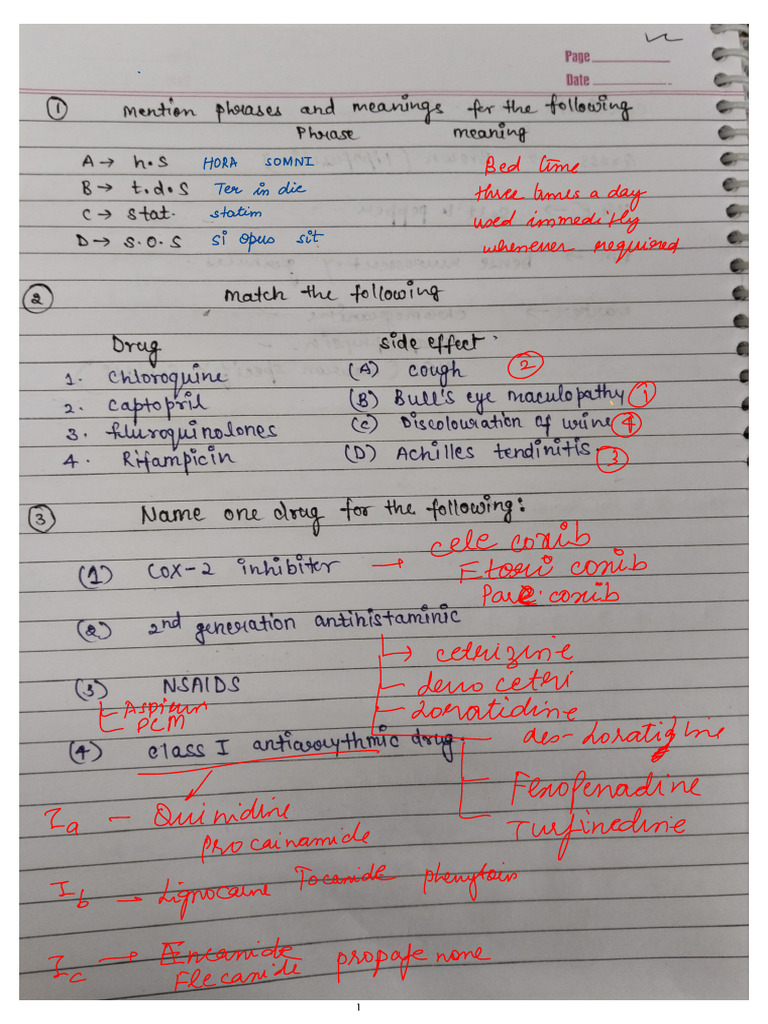 Page
Date
① Mention phrases and meanings for the following
Phrase meaning
A → h.s HORA SOMNI Bed time
B → t.d.s Ter in die three times a day
C → stat. statim used immeditly
D → s.o.s si opus sit whenever required
② Match the following
Drug side effect.
1. Chloroquine (A) cough ②
2. Captopril (B) Bull's eye maculopathy ①
3. fluroquinolones (C) Discolouration of urine ④
4. Rifampicin (D) Achilles tendinitis. ③
③ Name one drug for the following:
(1) COX-2 inhibiter → cele coxib
Etori coxib
Pare coxib
(2) 2nd generation antihistaminic
→ cetrizine
(3) NSAIDS - levo cetri
Aspirin - Loratidine
PCM
(4) class I antiarrythmic drug - des-Loratidine
Fexofenadine
Turfinedine
Ia - Quinidine
procainamide
Ib → Lignocaine Tocanide phenytoin
Ic → Encanide propafenone
Flecanide
1